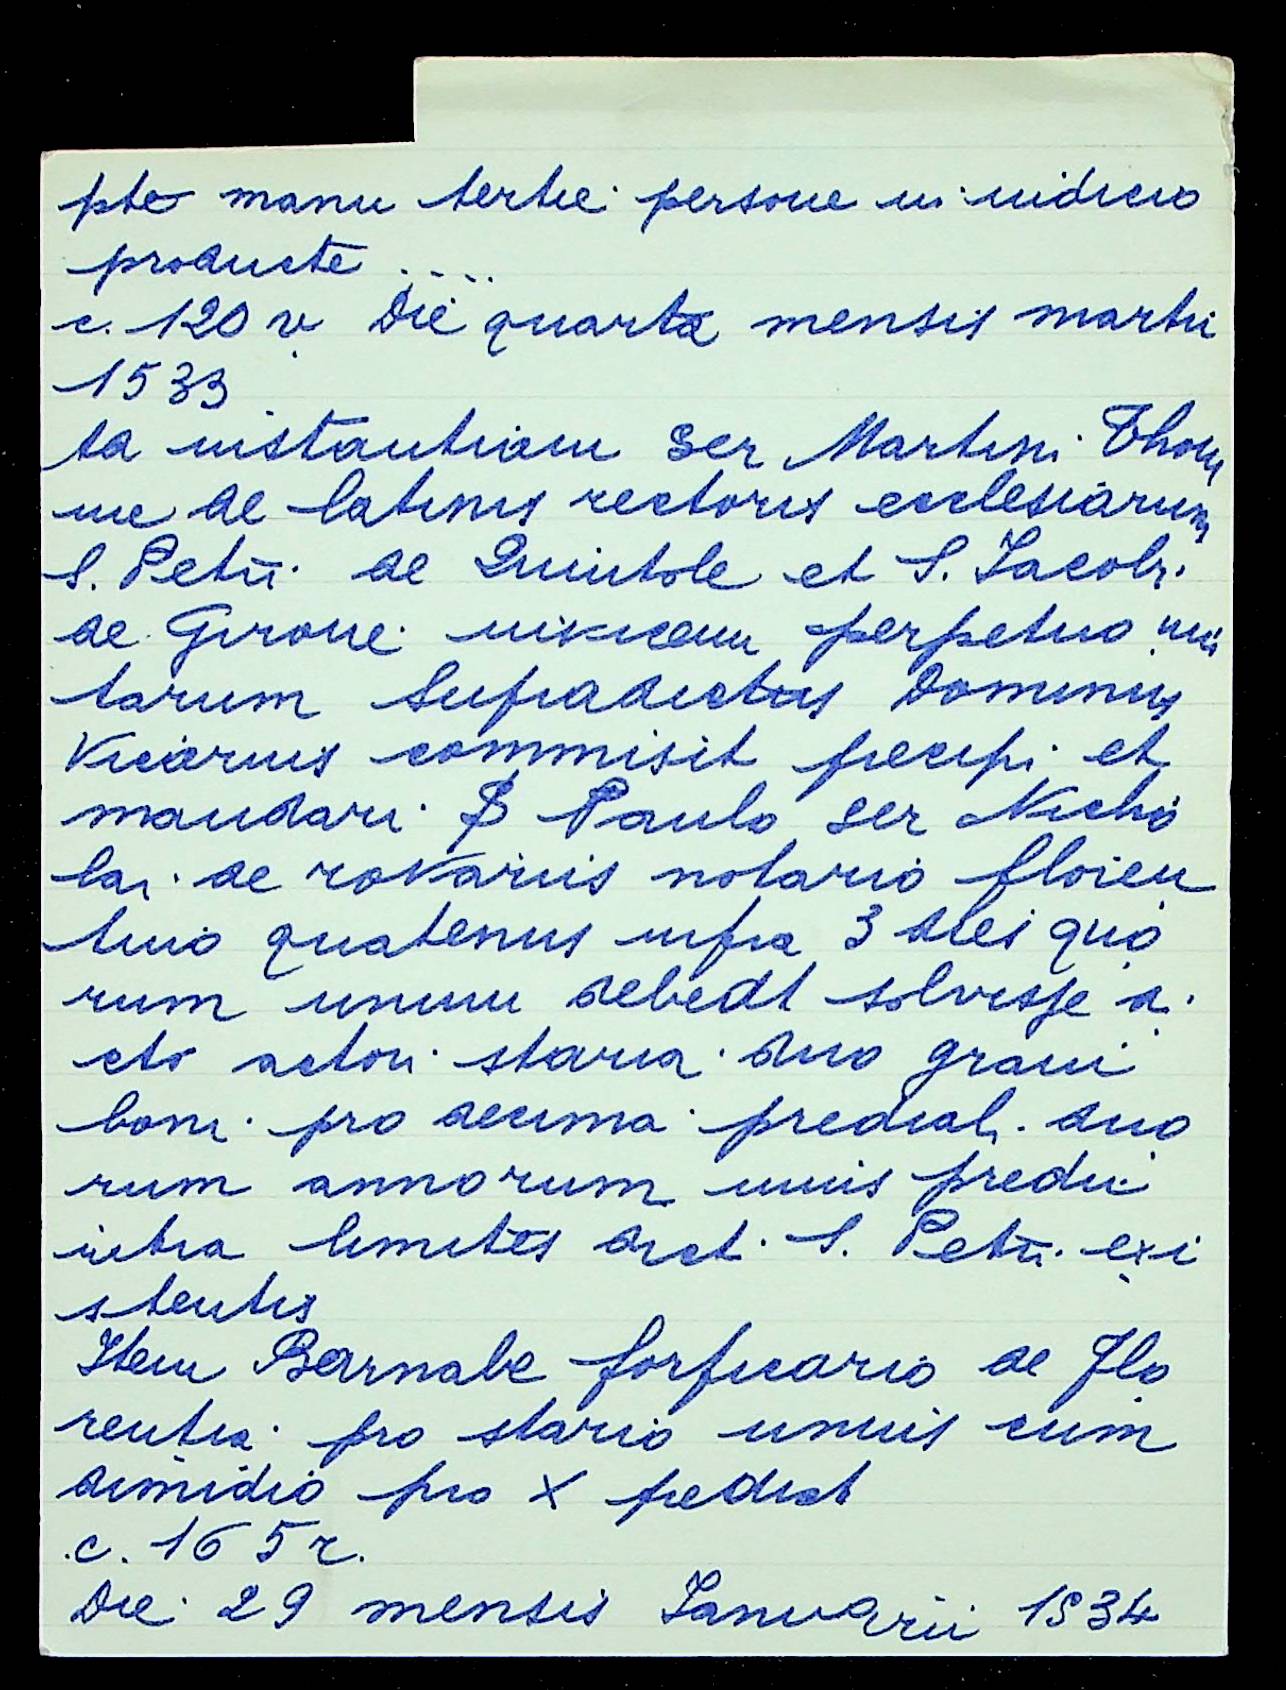 pte manu tertie persone in iudicio
producte ....
c. 120 v Die quarta mensis martii
1533
ta instantiam ser Martini Thom
me de latinis rectoris ecclesiarum
S. Petri de Quintole et S. Iacobi
de Girone invicem perpetuo uni
tarum Supradictus Dominus
Vicarius commisit precipi et
mandari S Paulo ser Nicho
lai de rovariis notario floren
tino quatenus infra 3 dies quo
rum unum debeat solvisse d.
cto actori staria duo grani
boni pro decima predial. duo
rum annorum unius predii
intra limites dict. S. Petri exi
stentis
Item Barnabe forficario de Flo
rentia pro stario unius cum
dimidio pro X predict
c. 165 r.
Die 29 mensis Ianuarii 1534